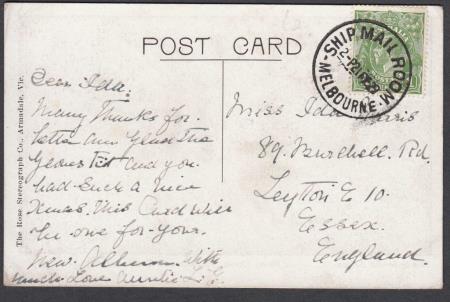 POST CARD
SHIP MAIL ROOM
MELBOURNE
The Rose Stereograph Co., Armadale, Vic.
Dear Ida.
Many Thanks for
letter am glad the
gloves fit and you
had such a nice
Xmas. This Card will
be one for your
New Album. With
much Love Auntie
Miss Ida
89. Burchell. Rd.
Leyton E 10.
Essex.
England.